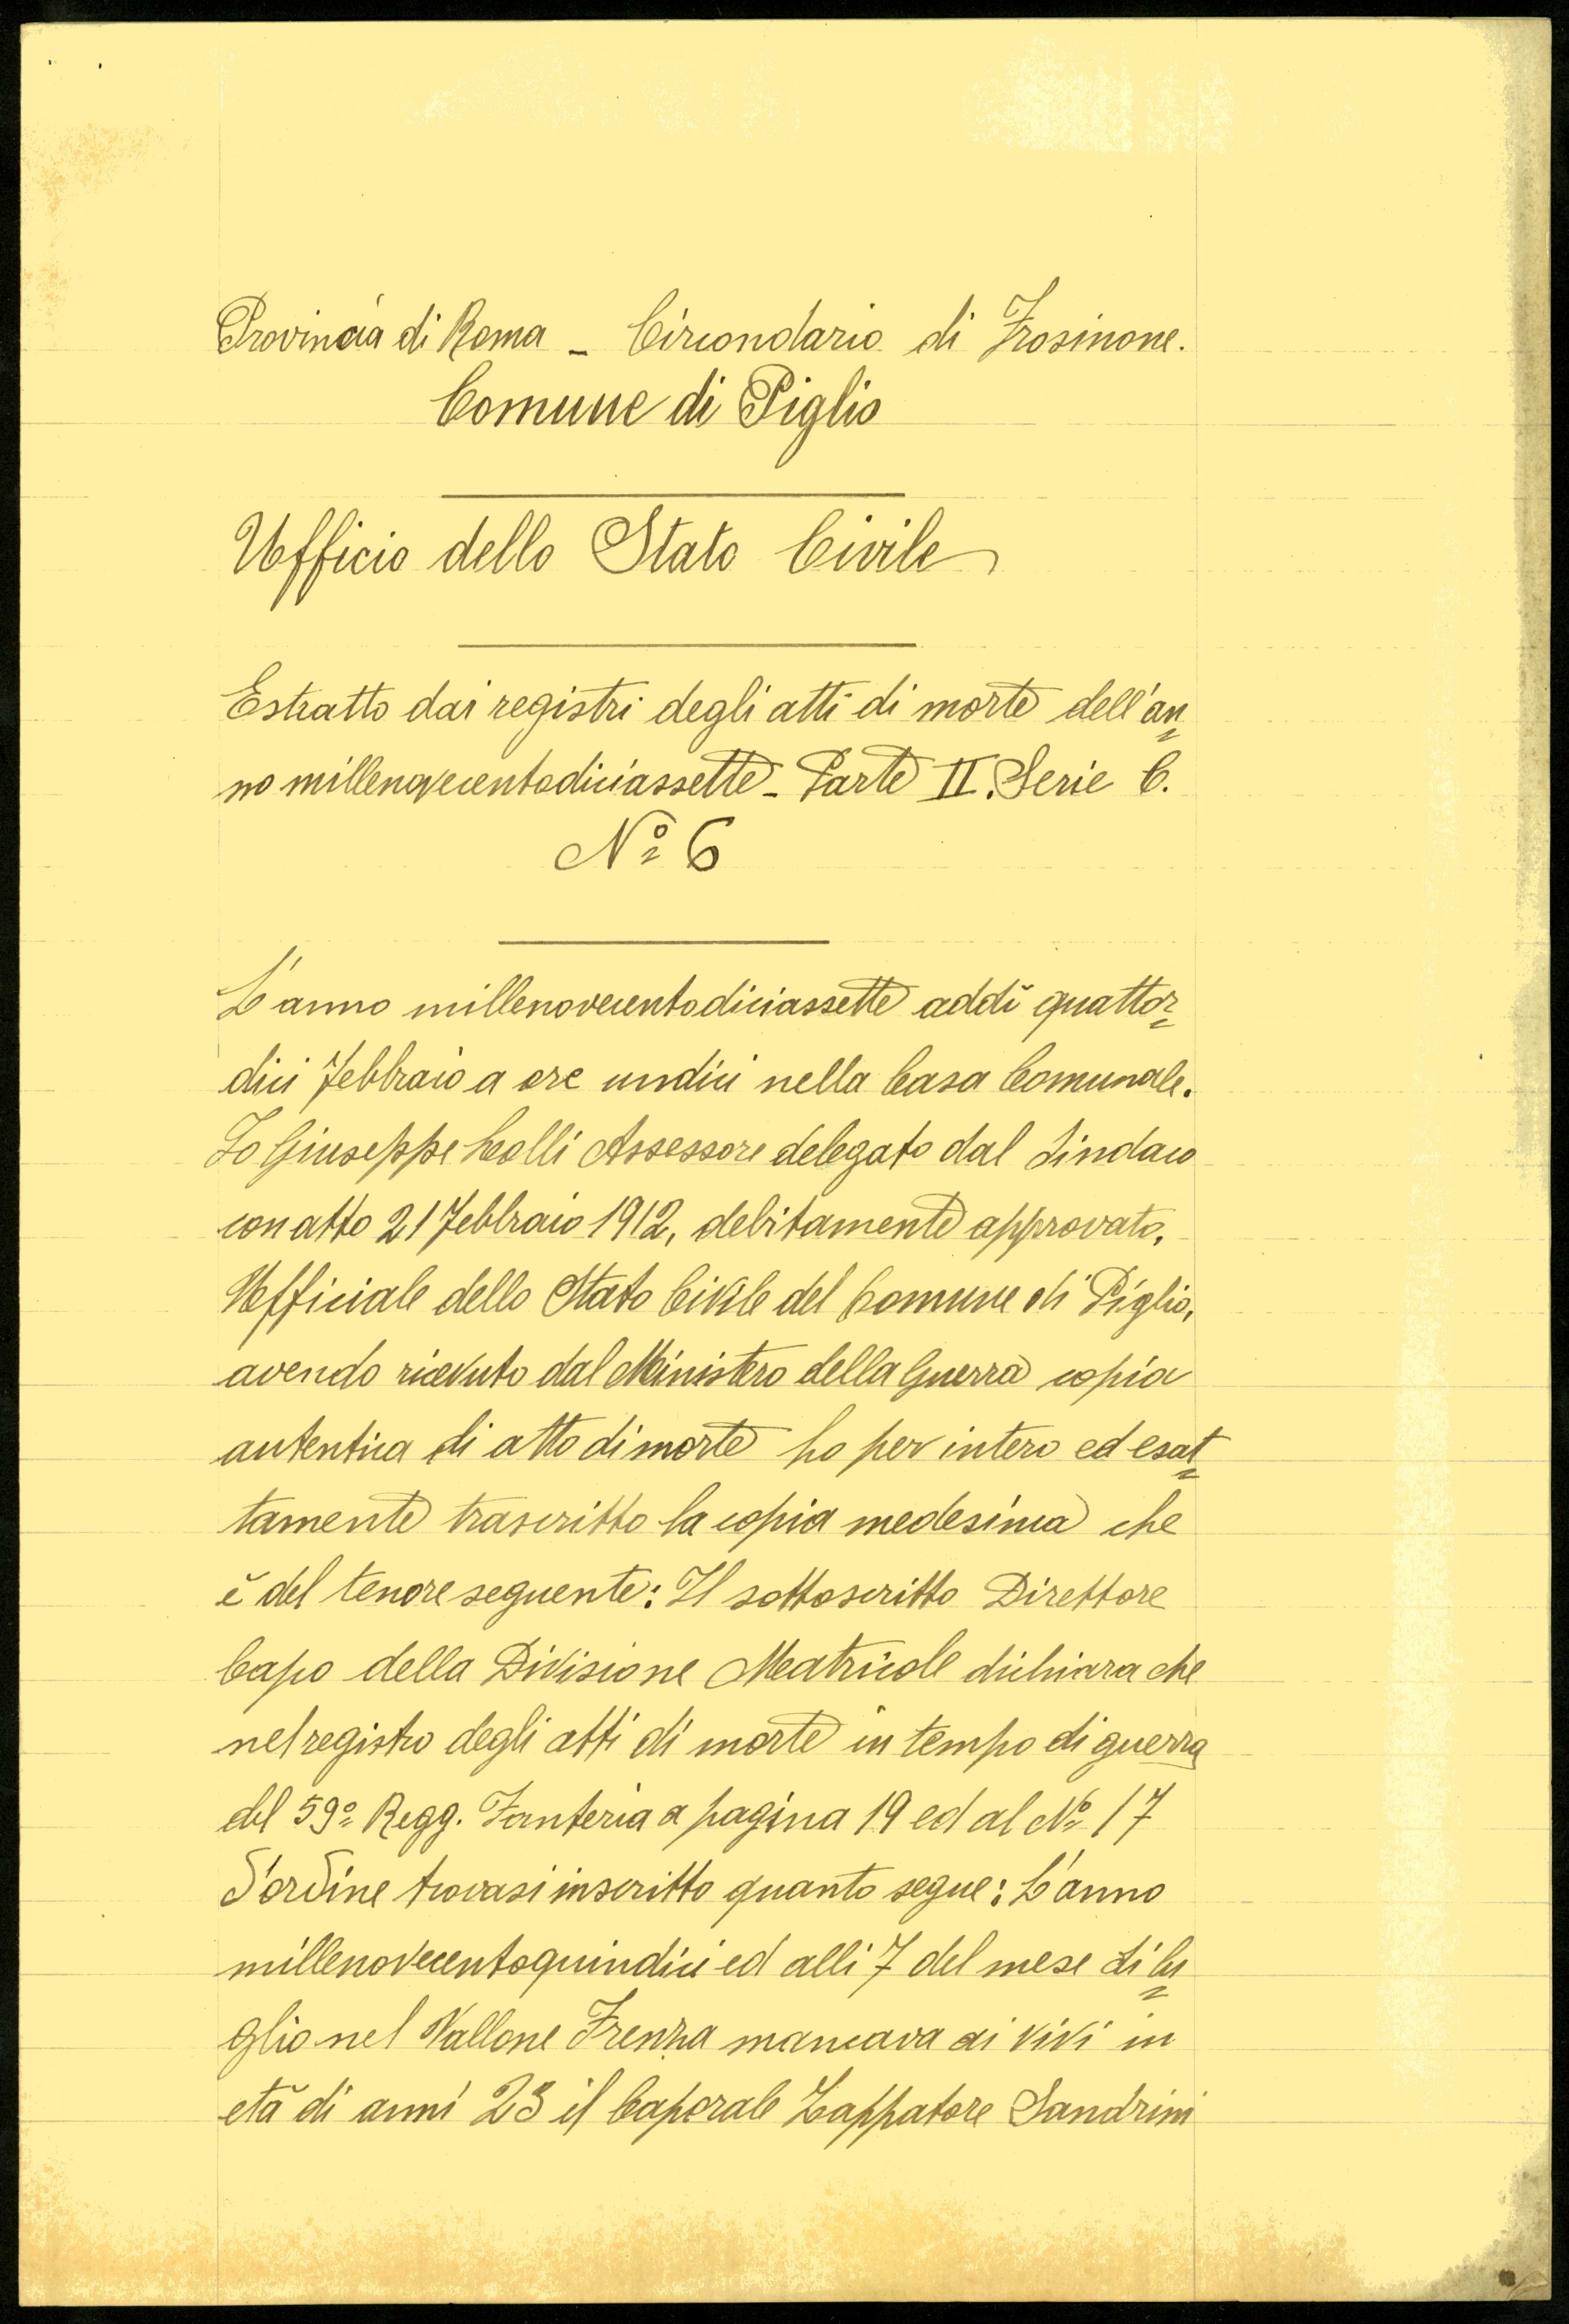 Provincia di Roma - Circondario di Frosinone.
Comune di Piglio
Ufficio dello Stato Civile
Estratto dai registri degli atti di morte dell'an=
no millenovecentodiciassette - Parte II. Serie C.
Nº 6
L'anno millenovecentodiciassette addì quattor=
dici Febbraio a ore undici nella Casa Comunale.
Io Giuseppe Colli Assessore delegato dal Sindaco
con atto 21 Febbraio 1912, debitamente approvato,
Ufficiale dello Stato Civile del Comune di Piglio,
avendo ricevuto dal Ministero della Guerra copia
autentica di atto di morte ho per intero ed esat=
tamente trascritto la copia medesima che
è del tenore seguente: Il sottoscritto Direttore
Capo della Divisione Matricole dichiara che
nel registro degli atti di morte in tempo di guerra
del 59º Regg. Fanteria a pagina 19 ed al Nº 17
d'ordine trovasi inscritto quanto segue: L'anno
millenovecentoquindici ed alli 7 del mese di lu=
glio nel Vallone Frenza mancava ai vivi in
età di anni 23 il Caporale Zappatore Sandrini